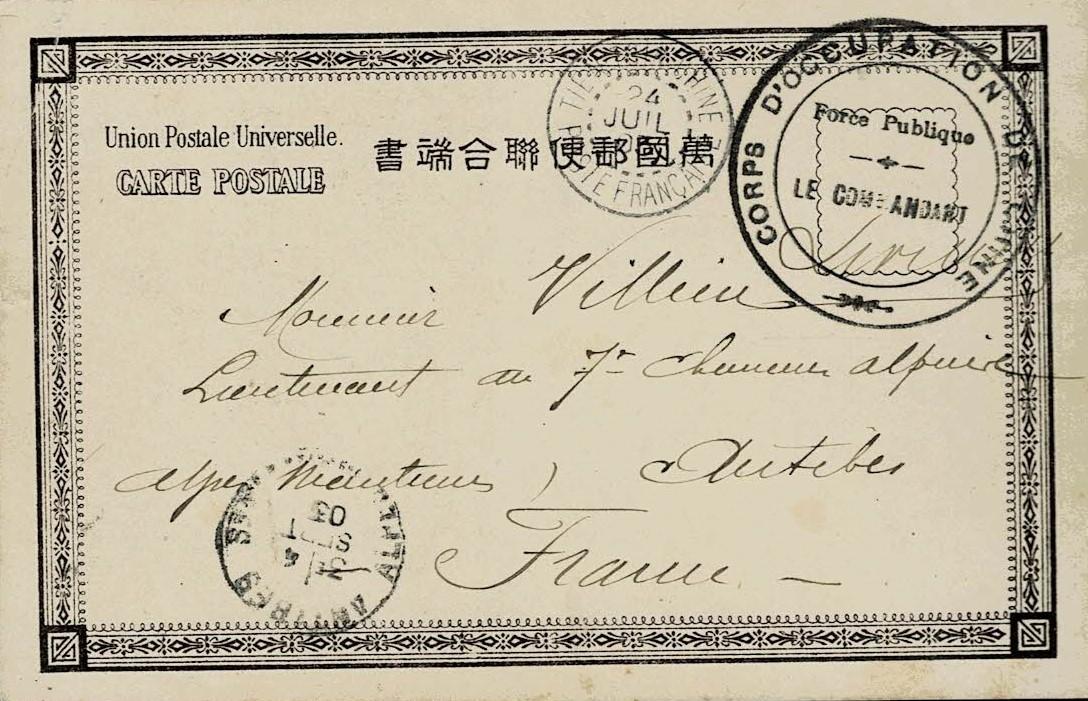 Union Postale Universelle.
CARTE POSTALE
書端合聯便郵國萬
CHINE
24
JUIL
POSTE FRANÇAISE
CORPS D'OCCUPATION DE CHINE
Force Publique
LE COMMANDANT
Monsieur
Lieutenant au 7e chasseurs alpins
Antibes
France
ANTIBES ALPES
SEPT
03